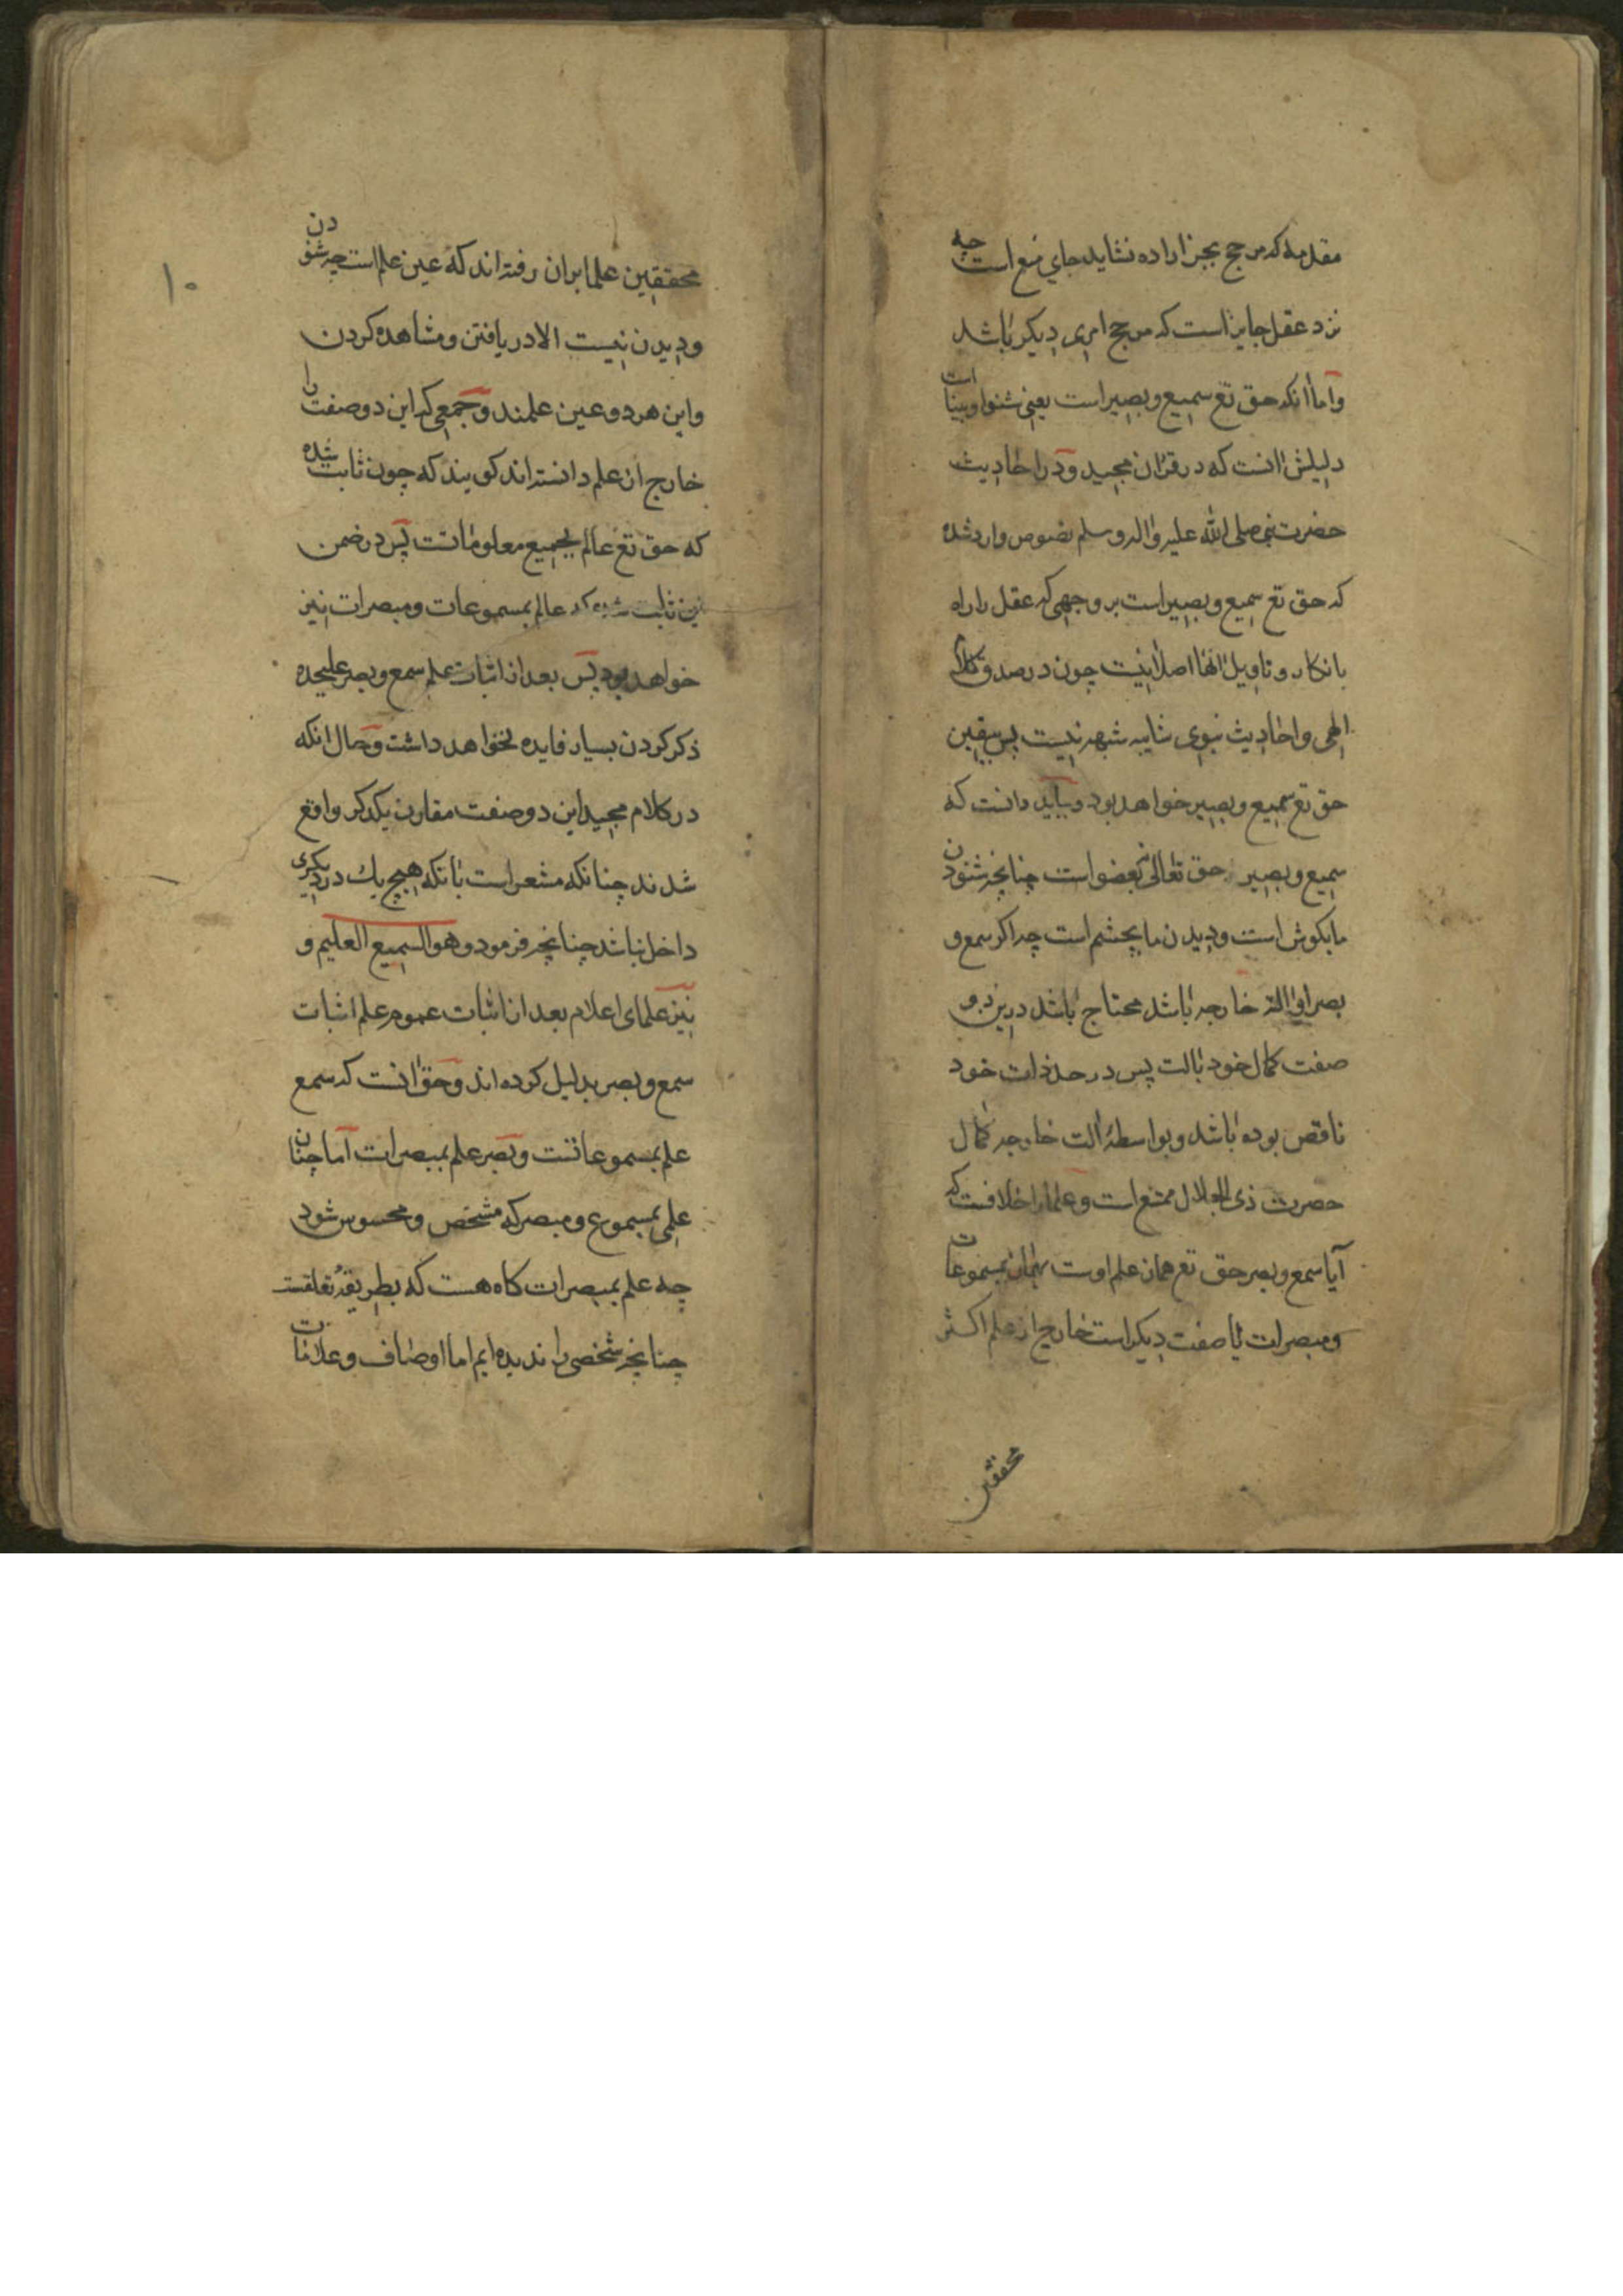 مقدمه که مرجح بجز اراده نشاید جای منع است چه
نزد عقل جایز است که مرجح امری دیکر باشد
واما انکه حق تع سمیع وبصیر است یعنی شنوا وبیناست
دلیلش انست که در قران مجید ودر احادیث
حضرت نبی صلی الله علیه واله وسلم نصوص وارد شده
که حق تع سمیع وبصیر است بر وجهی که عقل را راه
بانکار وتاویل انها اصلا نیست چون در صدق کلام
الهی واحادیث نبوی شایبه شبهه نیست پس یقین
حق تع سمیع وبصیر خواهد بود وباید دانست که
سمیع وبصیر حق تعالی نه بعضو است چنانچه شنودن
ما بکوش است ودیدن ما بچشم است چه اکر سمع و
بصر اورا الة خارجه باشد محتاج باشد درین دو
صفت کمال خود بالت پس در حد ذات خود
ناقص بوده باشد وبواسطهٔ الت خارجه کمال
حضرت ذی الجلال ممتنع است وعلما را خلافست که
آیا سمع وبصر حق تع همان علم اوست بهمان بمسموعات
ومبصرات یا صفت دیکر است خارج از علم اکثر
محققین
۱۰
محققین علما بران رفته اند که عین علم است چه شنودن
ودیدن نیست الا دریافتن ومشاهده کردن
واین هر دو عین علمند وجمعی که این دو صفت را
خارج از علم دانسته اند کویند که چون ثابت شده
که حق تع عالم بجمیع معلوماتست پس در ضمن
این ثابت شده که عالم بمسموعات ومبصرات نیز
خواهد بود پس بعد از اثبات علم سمع وبصر علیحده
ذکر کردن بسیار فایده نخواهد داشت وحال انکه
در کلام مجید این دو صفت مقارن یکدکر واقع
شدند چنانکه مشعر است بانکه هیچ یك در دیکری
داخل نباشد چنانچه فرمود وهو السمیع العلیم و
نیز علمای اعلام بعد از اثبات عموم علم اثبات
سمع وبصر بدلیل کرده اند وحق انست که سمع
علم بمسموعاتست وبصر علم بمبصرات اما چنان
علمی بمسموع ومبصر که مشخص ومحسوس شود
چه علم بمبصرات کاه هست که بطریقهٔ تعلقست
چنانچه شخصی را ندیده ایم اما اوصاف وعلامات